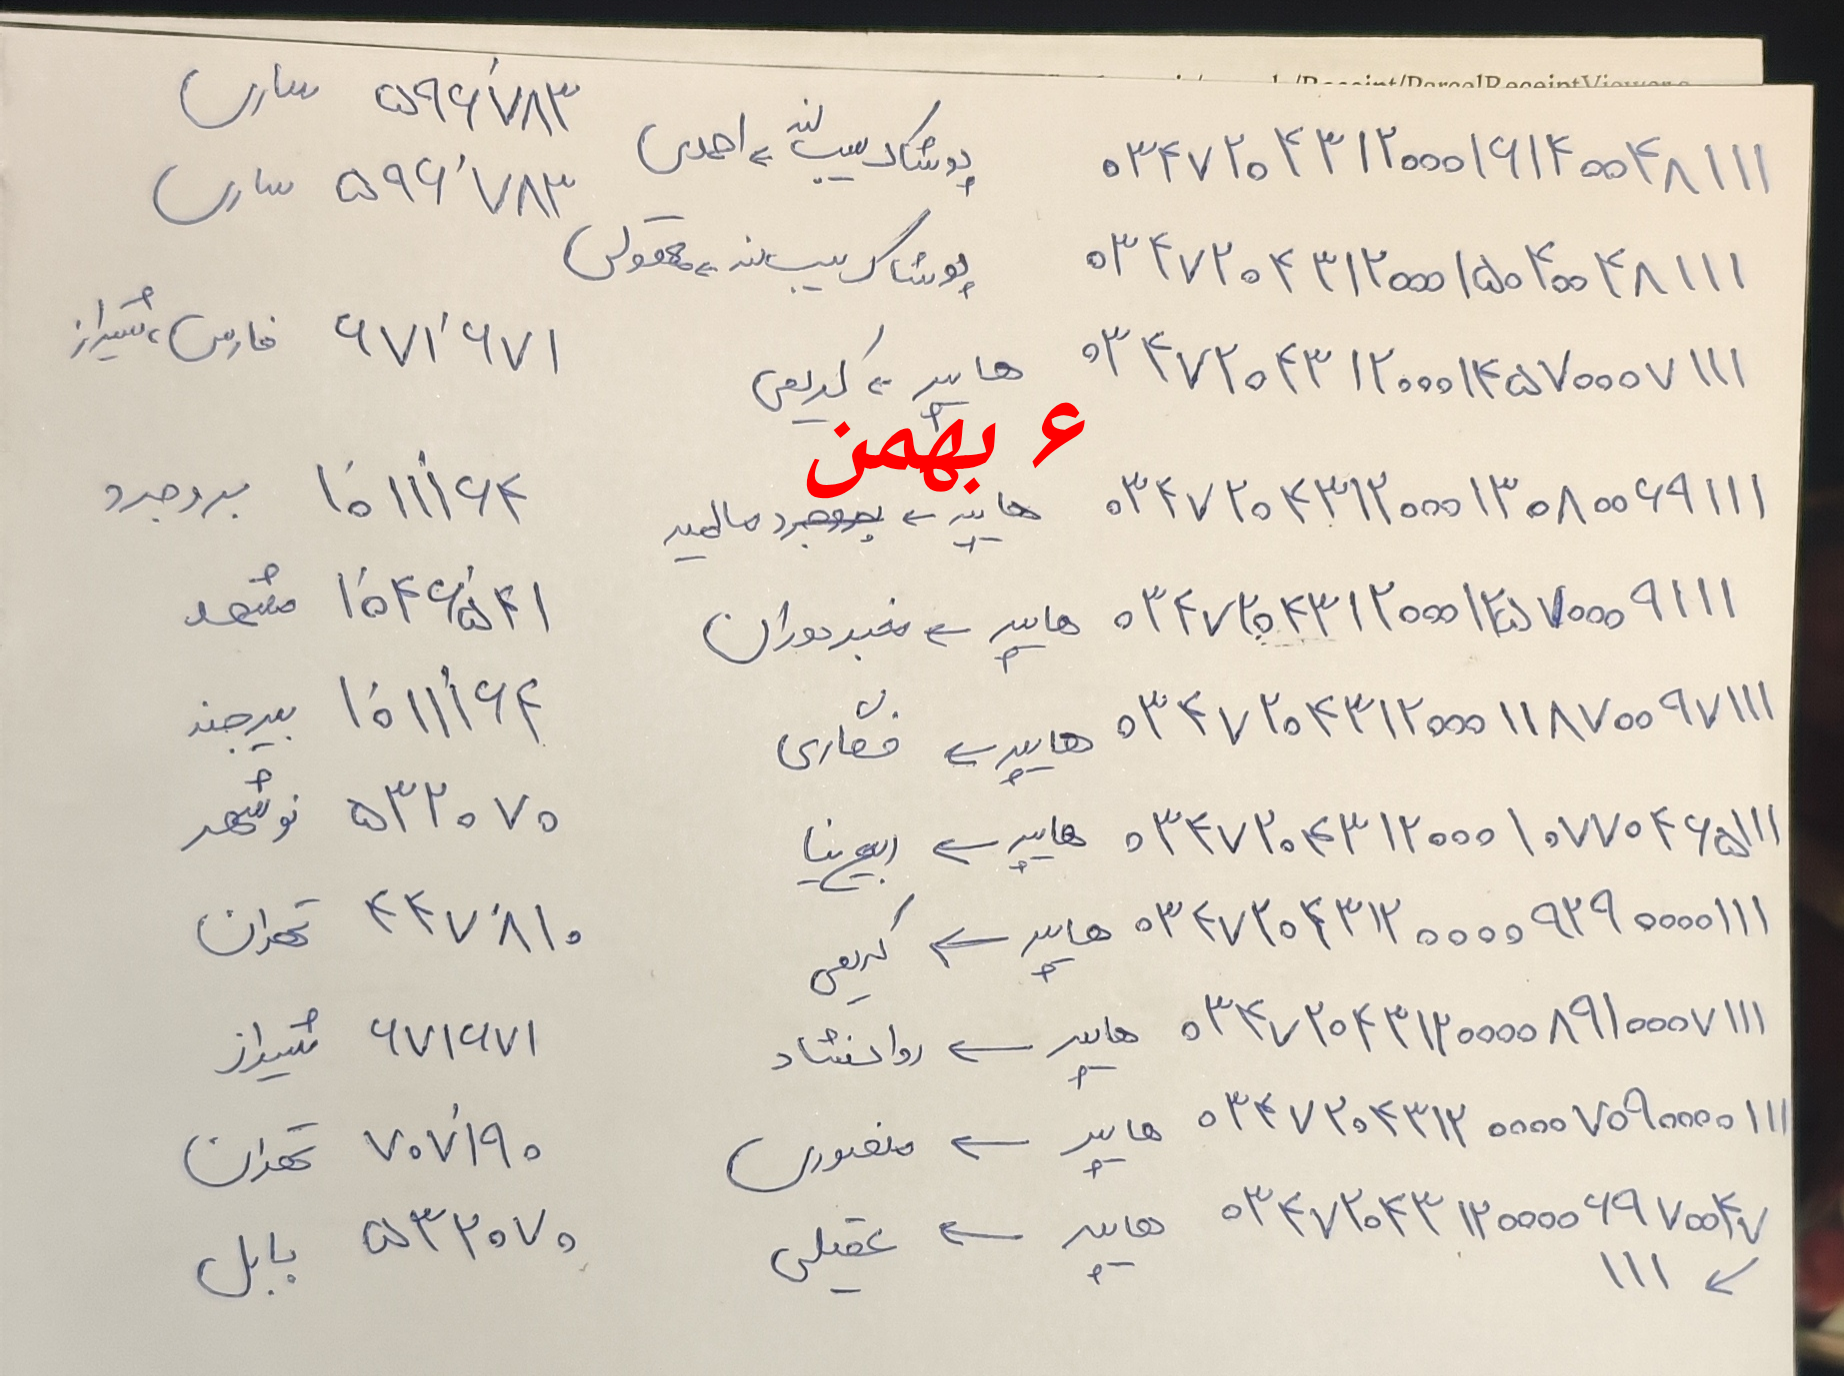 /Receipt/ParcelReceiptViewer
۰۳۴۷۲۰۴۳۱۲۰۰۰۱۶۱۴۰۰۴۸۱۱۱ پوشاک سیب لند ← احمدی ۵۹۶٬۷۸۳ ساری
۰۳۴۷۲۰۴۳۱۲۰۰۰۱۵۰۴۰۰۴۸۱۱۱ پوشاک سیب لند ← معقولی ۵۹۶٬۷۸۳ ساری
۰۳۴۷۲۰۴۳۱۲۰۰۰۱۴۵۷۰۰۰۷۱۱۱ هایپر ← کریمی ۶۷۱٬۶۷۱ فارس، شیراز
۶ بهمن
۰۳۴۷۲۰۴۳۱۲۰۰۰۱۳۰۸۰۰۶۹۱۱۱ هایپر ← سالمید ۱٬۰۱۱٬۱۶۴ بروجرد
۰۳۴۷۲۰۴۳۱۲۰۰۰۱۲۵۷۰۰۰۹۱۱۱ هایپر ← مخبر دوران ۱٬۰۴۶٬۵۴۱ مشهد
۰۳۴۷۲۰۴۳۱۲۰۰۰۱۱۸۷۰۰۹۷۱۱۱ هایپر ← فشاری ۱٬۰۱۱٬۱۶۴ بیرجند
۰۳۴۷۲۰۴۳۱۲۰۰۰۱۰۷۷۰۴۶۵۱۱۱ هایپر ← ۵۳۲۰۷۰ نوشهر
۰۳۴۷۲۰۴۳۱۲۰۰۰۰۹۲۹۰۰۰۰۱۱۱ هایپر ← کریمی ۴۴۷٬۸۱۰ تهران
۰۳۴۷۲۰۴۳۱۲۰۰۰۰۸۹۱۰۰۰۷۱۱۱ هایپر ← روانشاد ۶۷۱۶۷۱ شیراز
۰۳۴۷۲۰۴۳۱۲۰۰۰۰۷۰۹۰۰۰۰۱۱۱ هایپر ← منصوری ۷۰۷٬۱۹۰ تهران
۰۳۴۷۲۰۴۳۱۲۰۰۰۰۶۹۷۰۰۴۷ هایپر ← عقیلی ۵۳۲۰۷۰ بابل
↙ ۱۱۱